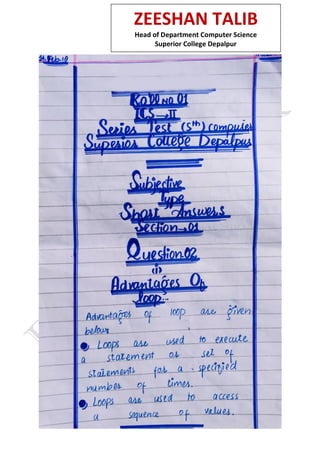 ZEESHAN TALIB
Head of Department Computer Science
Superior College Depalpur
Roll No 01
ICS → II
Series Test (5th) computer
Superior College Depalpur
Subjective
Type
Short Answers
Section → 01
Question 02
(i)
Advantages Of
loop:-
Advantages of loop are given
below
Loops are used to execute
a statement or set of
statements for a specified
number of times.
Loops are used to access
a sequence of values.